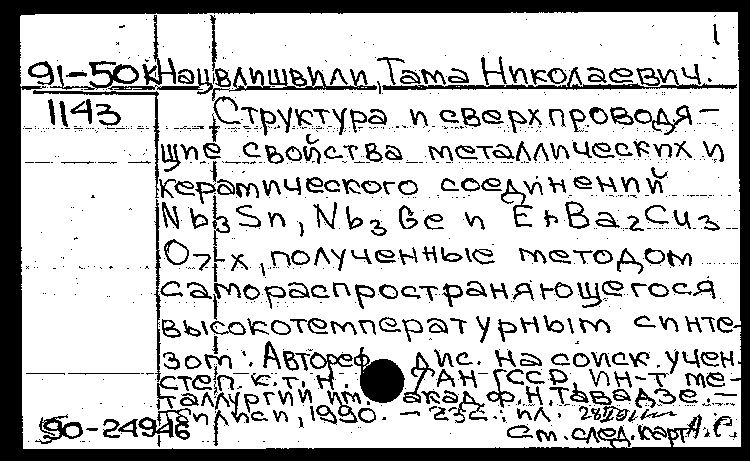 1
91-50к Нацвлишвили, Тама Николаевич.
1143 Структура и сверхпроводя-
щие свойства металлических и
керамического соединений
Nb₃Sn, Nb₃Ge и ErBa₂Cu₃
O₇-x, полученные методом
самораспространяющегося
высокотемпературным синте-
зом: Автореф. дис. на соиск. учен.
степ. к.т.н. / АН ГССР, Ин-т ме-
таллургии им. акад. Ф.Н. Тавадзе. -
Тбилиси, 1990. - 23с.: ил.
90-24946
См. след. карт А.С.